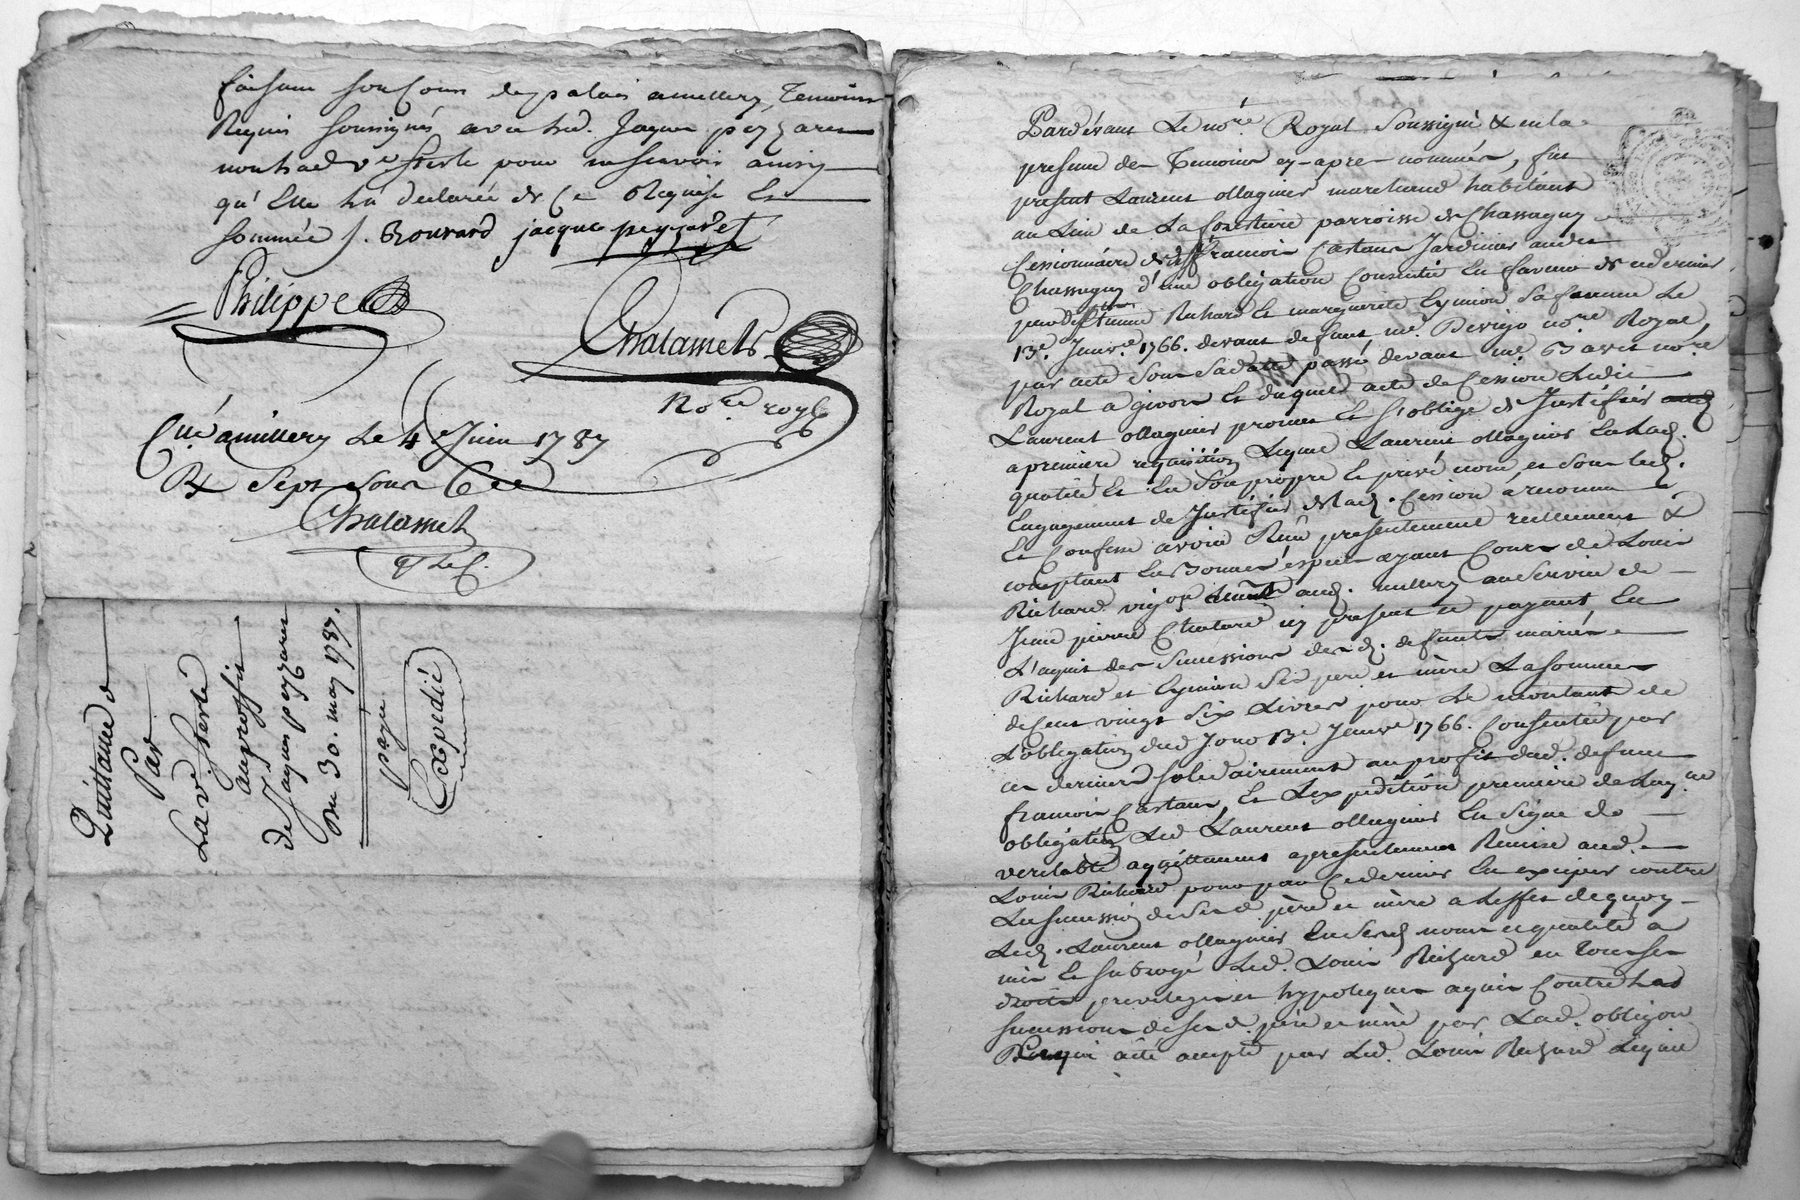 faisant son cours de palais a millery, Temoins
Requis soussignés avec led. Jaques peyzaret
non lad. ve. ferlé pour ne scavoir ainsy
qu'Elle l'a declarée de Ce Requise Et
sommée /. Bouvard jacque peyzaret
Philippe
Chalamel
No.re royl
Clé a millery Le 4e Juin 1787
Rx Sept sous 6 d
Chalamel
Quittance
Par
La ve. ferlé
au profit
de Jaques peyzaret
Du 30. may 1787.
payé
Expedié
Pardevant Le no.re Royal Soussigné & en la
presence des Temoins cy-apres nommés, fut
present Laurent ollagnier marchand habitant
au Lieu de La forestiere parroisse de Chassagny
Cessionnaire de françois Castaur Jardinier aud.
Chassagny d'une obligation Consentie En faveur de ce dernier
par deff. Richard Et marguerite Eymion sa femme Le
13e. Janv.er 1766. devant deffunt, me. no.re Royal,
par acte sous sa datte passé devant me. no.re
Royal a givors Et duquel acte de Cession Ledit
Laurent ollagnier promet Et s'oblige de Justifier
a premiere requisition Lequel Laurent ollagnier En lad.
qualité Et En Son propre Et privé nom, et sous led.
Engagement de Justifier de lad. Cession a reconnu
Et Confessé avoir Reçu presentement reellement &
comptant En Bonnes especes ayant Cours de Louis
Richard vigon aud. millery au Service de
Jean pierre ici present et payant, En
L'aquit des Successions des d. defunts mariés
Richard et Eymion Ses pere et mere La somme
de Cent vingt Six Livres pour Le montant de
L'obligation dud. Jour 13e. Janv.er 1766. Consentie par
ces derniers solidairement au profit dud. defunt
francois Castaur, Et L'expedition premiere de Lad.
obligation Led. Laurent ollagnier En Signe de
veritable aquittement a presentement Remise aud.
Louis Richard pour par Ce dernier En exciper contre
Les successions de Ses d. père et mère a L'effet de quoy
Led. Laurent ollagnier En Sesd. nom et qualité a
mis Et subrogé Led. Louis Richard en Tous ses
droits privileges et hypoteques aquis Contre Les
successions de ses d. père et mère par Lad. obligõn
Ce qui a été accepté par Led. Louis Richard Lequel